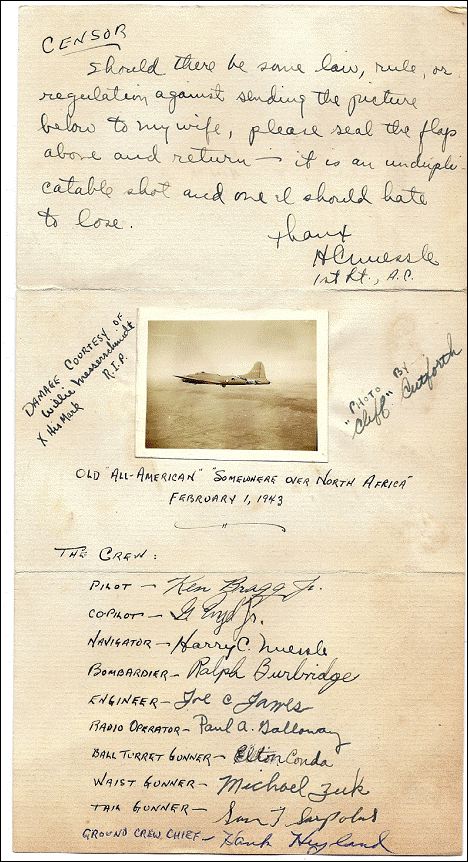 CENSOR
Should there be some law, rule, or
regulation against sending the picture
below to my wife, please seal the flaps
above and return — it is an undupli-
catable shot and one I should hate
to lose.
Thanx
HCNuessle
1st Lt., A.C.
DAMAGE COURTESY OF
Willie Messerschmidt
R.I.P.
X His Mark
"PHOTO BY
Cliff" Cutforth
OLD "ALL-AMERICAN" "SOMEWHERE OVER NORTH AFRICA"
FEBRUARY 1, 1943
THE CREW:
PILOT — Ken Bragg Jr.
COPILOT — G Jr.
NAVIGATOR — Harry C. Nuessle
BOMBARDIER — Ralph Burbridge
ENGINEER — Joe C James
RADIO OPERATOR — Paul A. Galloway
BALL TURRET GUNNER — Elton Conda
WAIST GUNNER — Michael Zuk
TAIL GUNNER — Sam T Sarpolus
GROUND CREW CHIEF — Hank Hyland